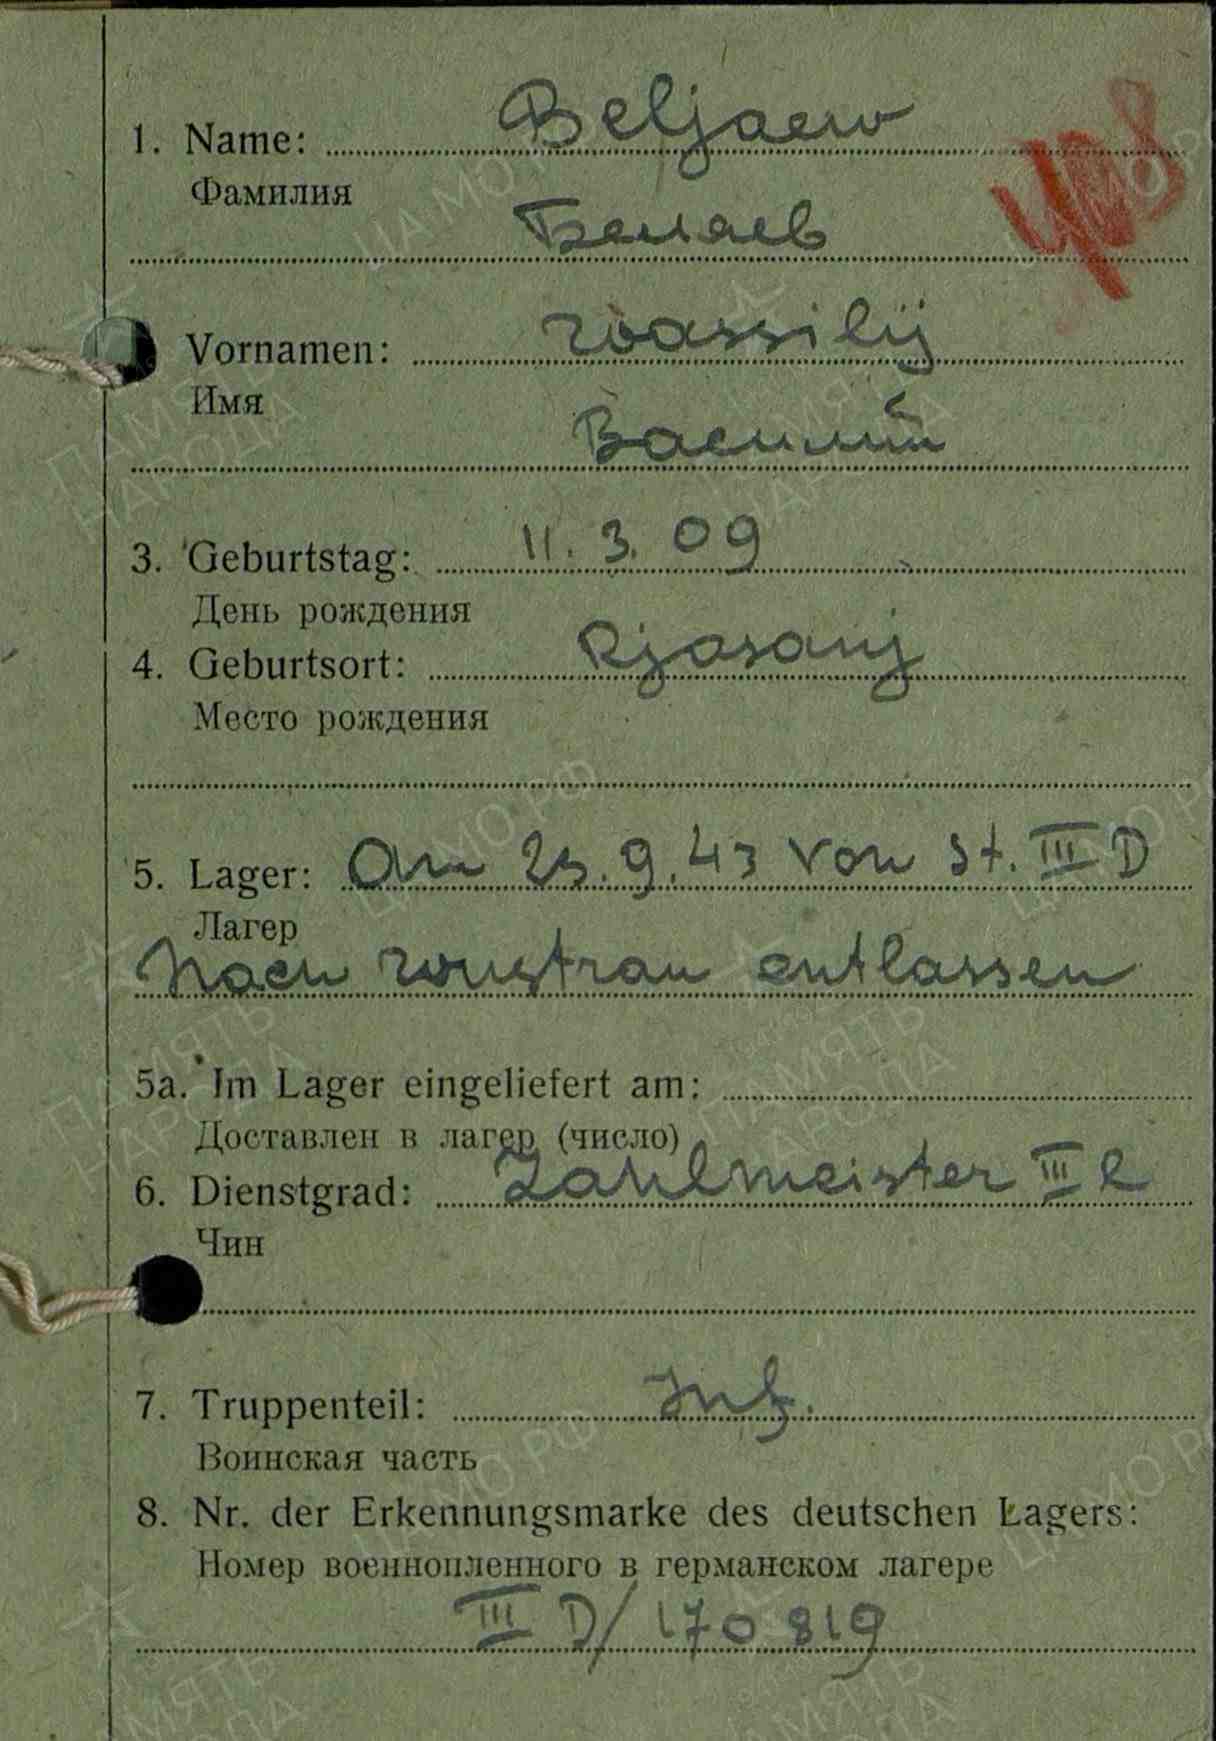 1. Name: Beljaew
Фамилия
Беляев
Vornamen: Wassilij
Имя
Василий
3. Geburtstag: 11. 3. 09
День рождения
4. Geburtsort: Rjasanj
Место рождения
5. Lager: Am 25.9.43 von St. III D
Лагер
nach Wustrau entlassen
5a. Im Lager eingeliefert am:
Доставлен в лагер (число)
6. Dienstgrad: Zahlmeister III
Чин
7. Truppenteil: Inf.
Воинская часть
8. Nr. der Erkennungsmarke des deutschen Lagers:
Номер военнопленного в германском лагере
III D/ 170 819
ЦАМО.РФ
ПАМЯТЬ
НАРОДА